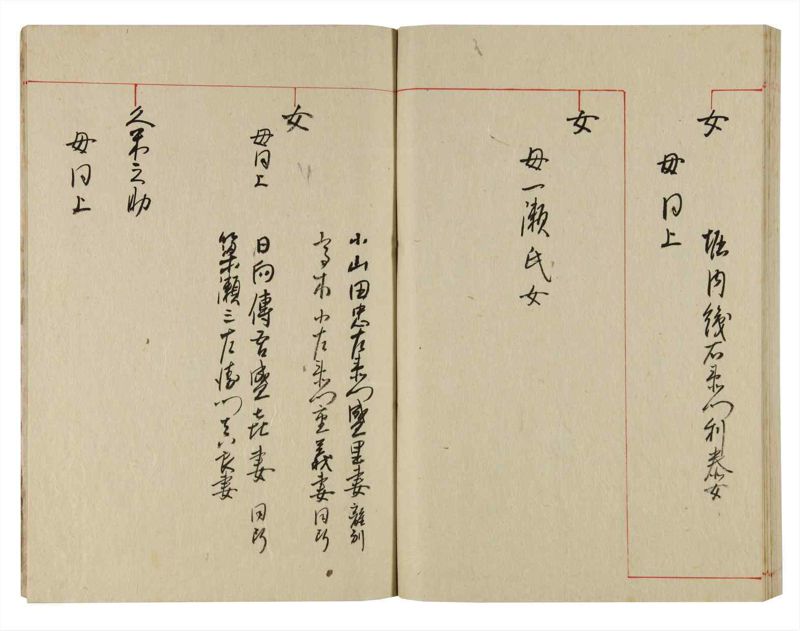 女
堀内儀右衛門利泰女
母同上
女
母一瀬氏女
女
小山田忠左衛門盛里妻 離別
高木小左衛門重義妻 同断
母同上
日向傳吾盛㐂妻 同断
簗瀬三左衛門真長妻
久米之助
母同上